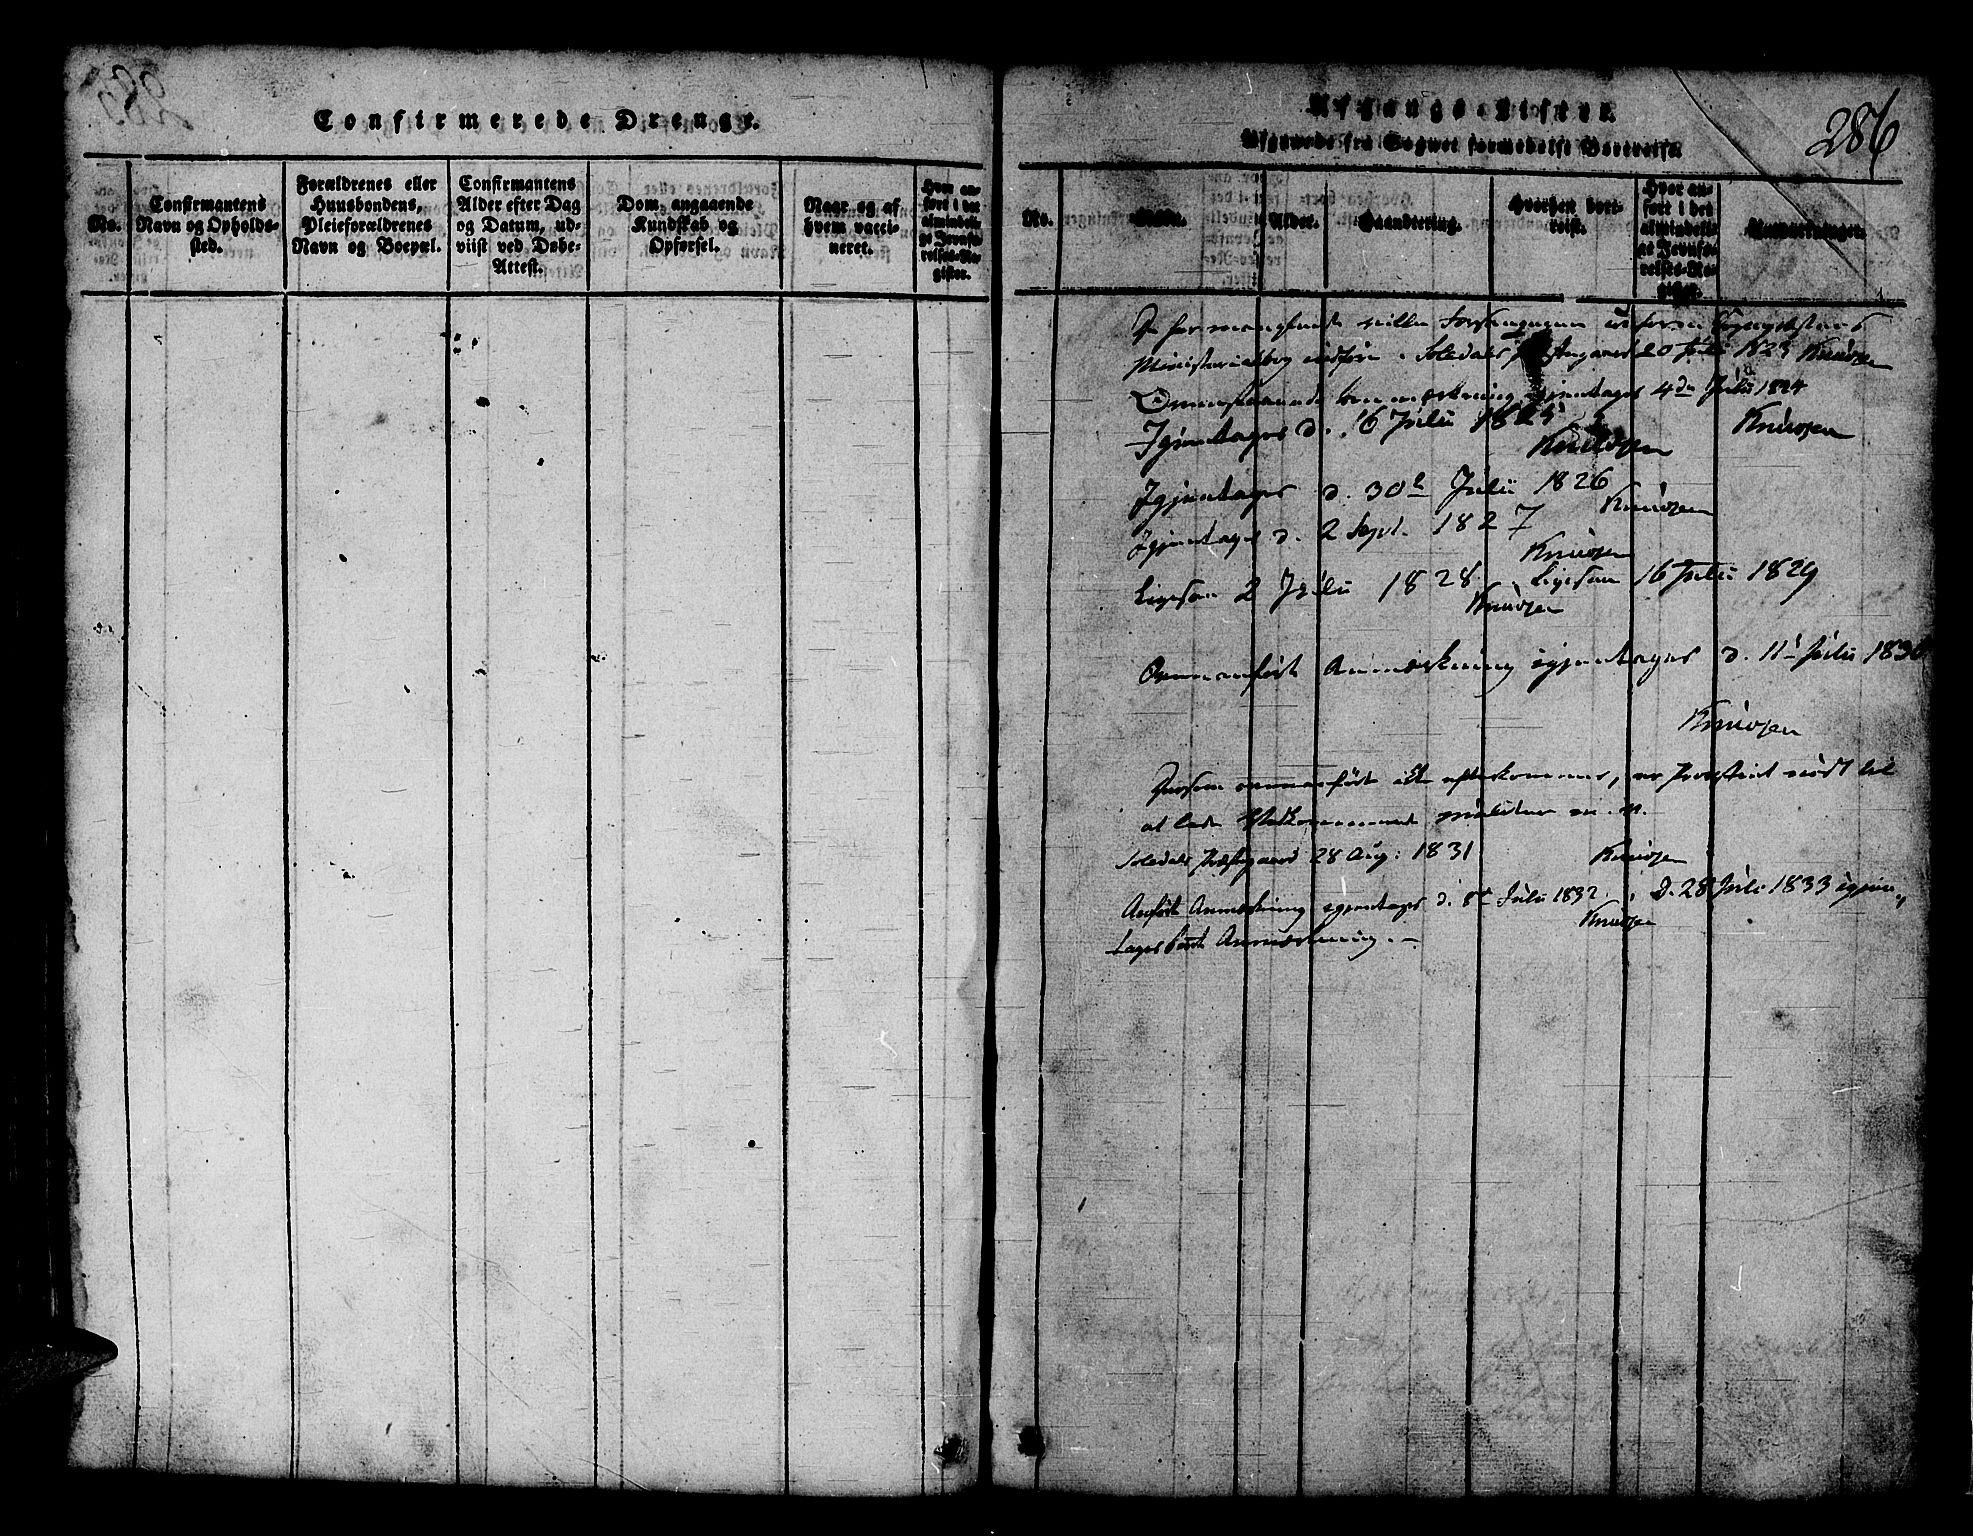 Confirmerede Drenge.
No.
Confirmantens Navn og Opholds-sted.
Forældrenes eller Huusbondens, Pleieforældrenes Navn og Boepæl.
Confirmantens Alder efter Dag og Datum, ud-viist ved Døbe-Attest.
Dom angaaende Kundskab og Opførsel.
Naar og af hvem vacci-neret.
Hvor an-ført i det almindeli-ge Jevnfø-relses-Re-gister.
286
Afgangs-Lister.
Afgaaede fra Sognet formedelst Bortreise.
No.
Navn.
Alder.
Haandtering.
Hvorhen bort-reist.
Hvor an-ført i det almindeli-ge Jevnfø-relses-Re-gister.
Anmærkninger.
De her manglende
Ministerialbog Soledals 20 Juli 1823 Knudsen
Ovenstaaende bemærkning igjentages 4de Julii 1824
Igjentages d. 16 Julii 1825 Knudsen
Knudsen
Igjentages d. 30te Julii 1826
Knudsen
Igjentages d. 2 Sept. 1827
Knudsen
Ligesaa 2 Julii 1828. Ligesaa 16 Julii 1829
Knudsen
Ovenanført Anmærkning igjentages d. 11te Julii 1830
Knudsen
Dersom ovenanført ikke efterkommes, er Provstiet nødt til
at lade Vedkommende mulctere m. m.
Soledals Præstegaard 28 Aug: 1831 Knudsen
Anført Anmærkning igjentages d. 8de Julii 1832. D. 28 Juli 1833 igjen-
Knudsen
tages Anmærkning. –